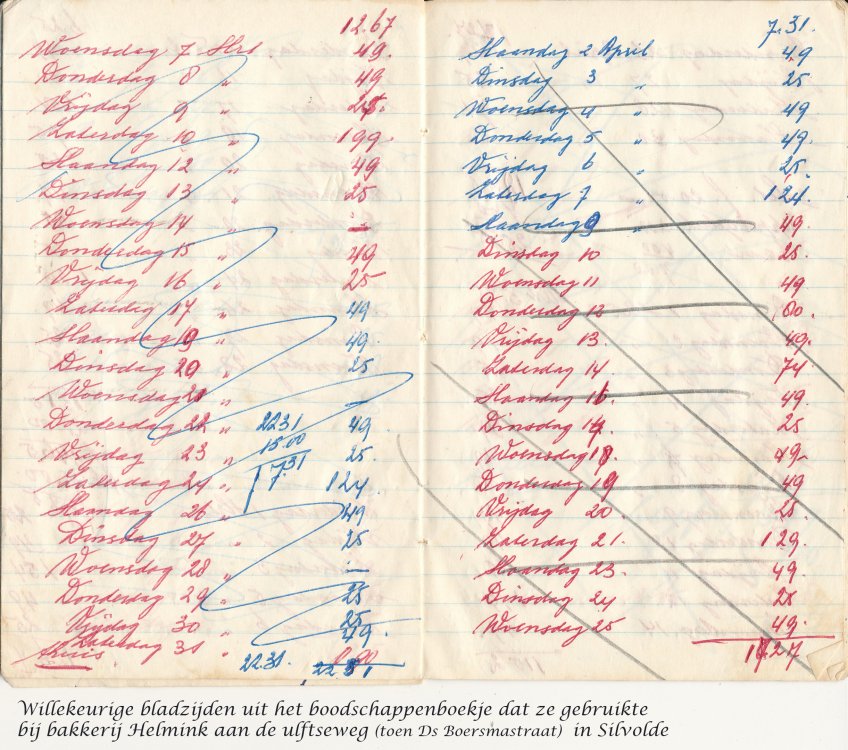 12.67
Woensdag 7 Mrt 49.
Donderdag 8 " 49
Vrijdag 9 " 25
Zaterdag 10 " 199.
Maandag 12 " 49
Dinsdag 13 " 25
Woensdag 14 " —
Donderdag 15 " 49
Vrijdag 16 " 25
Zaterdag 17 " 49
Maandag 19 " 49.
Dinsdag 20 " 25
Woensdag 21 " —
Donderdag 22 " 49
Vrijdag 23 " 25.
Zaterdag 24 " 124.
Maandag 26 " 49
Dinsdag 27 " 25
Woensdag 28 " —
Donderdag 29 " 25
Vrijdag 30 " 25
Zaterdag 31 " 49.
22.31. 22.31
2231
15.00
7.31
7.31.
Maandag 2 April 49
Dinsdag 3 " 25
Woensdag 4 " 49
Donderdag 5 " 49.
Vrijdag 6 " 25.
Zaterdag 7 " 124.
Maandag 9 " 49.
Dinsdag 10 25.
Woensdag 11 49
Donderdag 12 00.
Vrijdag 13. 49.
Zaterdag 14. 74
Maandag 16. 49.
Dinsdag 17. 25
Woensdag 18. 49
Donderdag 19 49
Vrijdag 20. 25.
Zaterdag 21. 129.
Maandag 23. 49
Dinsdag 24 25
Woensdag 25 49.
Willekeurige bladzijden uit het boodschappenboekje dat ze gebruikte
bij bakkerij Helmink aan de ulftseweg (toen Ds Boersmastraat) in Silvolde